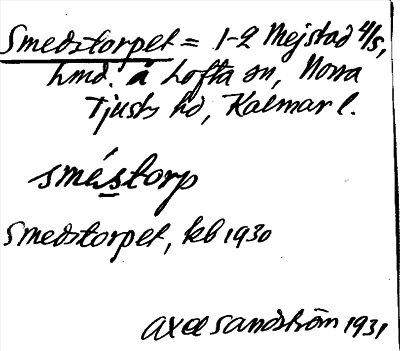 Smedstorpet = 1-2 Mejstad 4/5,
hmd. å Lofta sn, Norra
Tjusts hd, Kalmar l.
sméstorp
Smedstorpet, kb 1930
Axel Sandström 1931